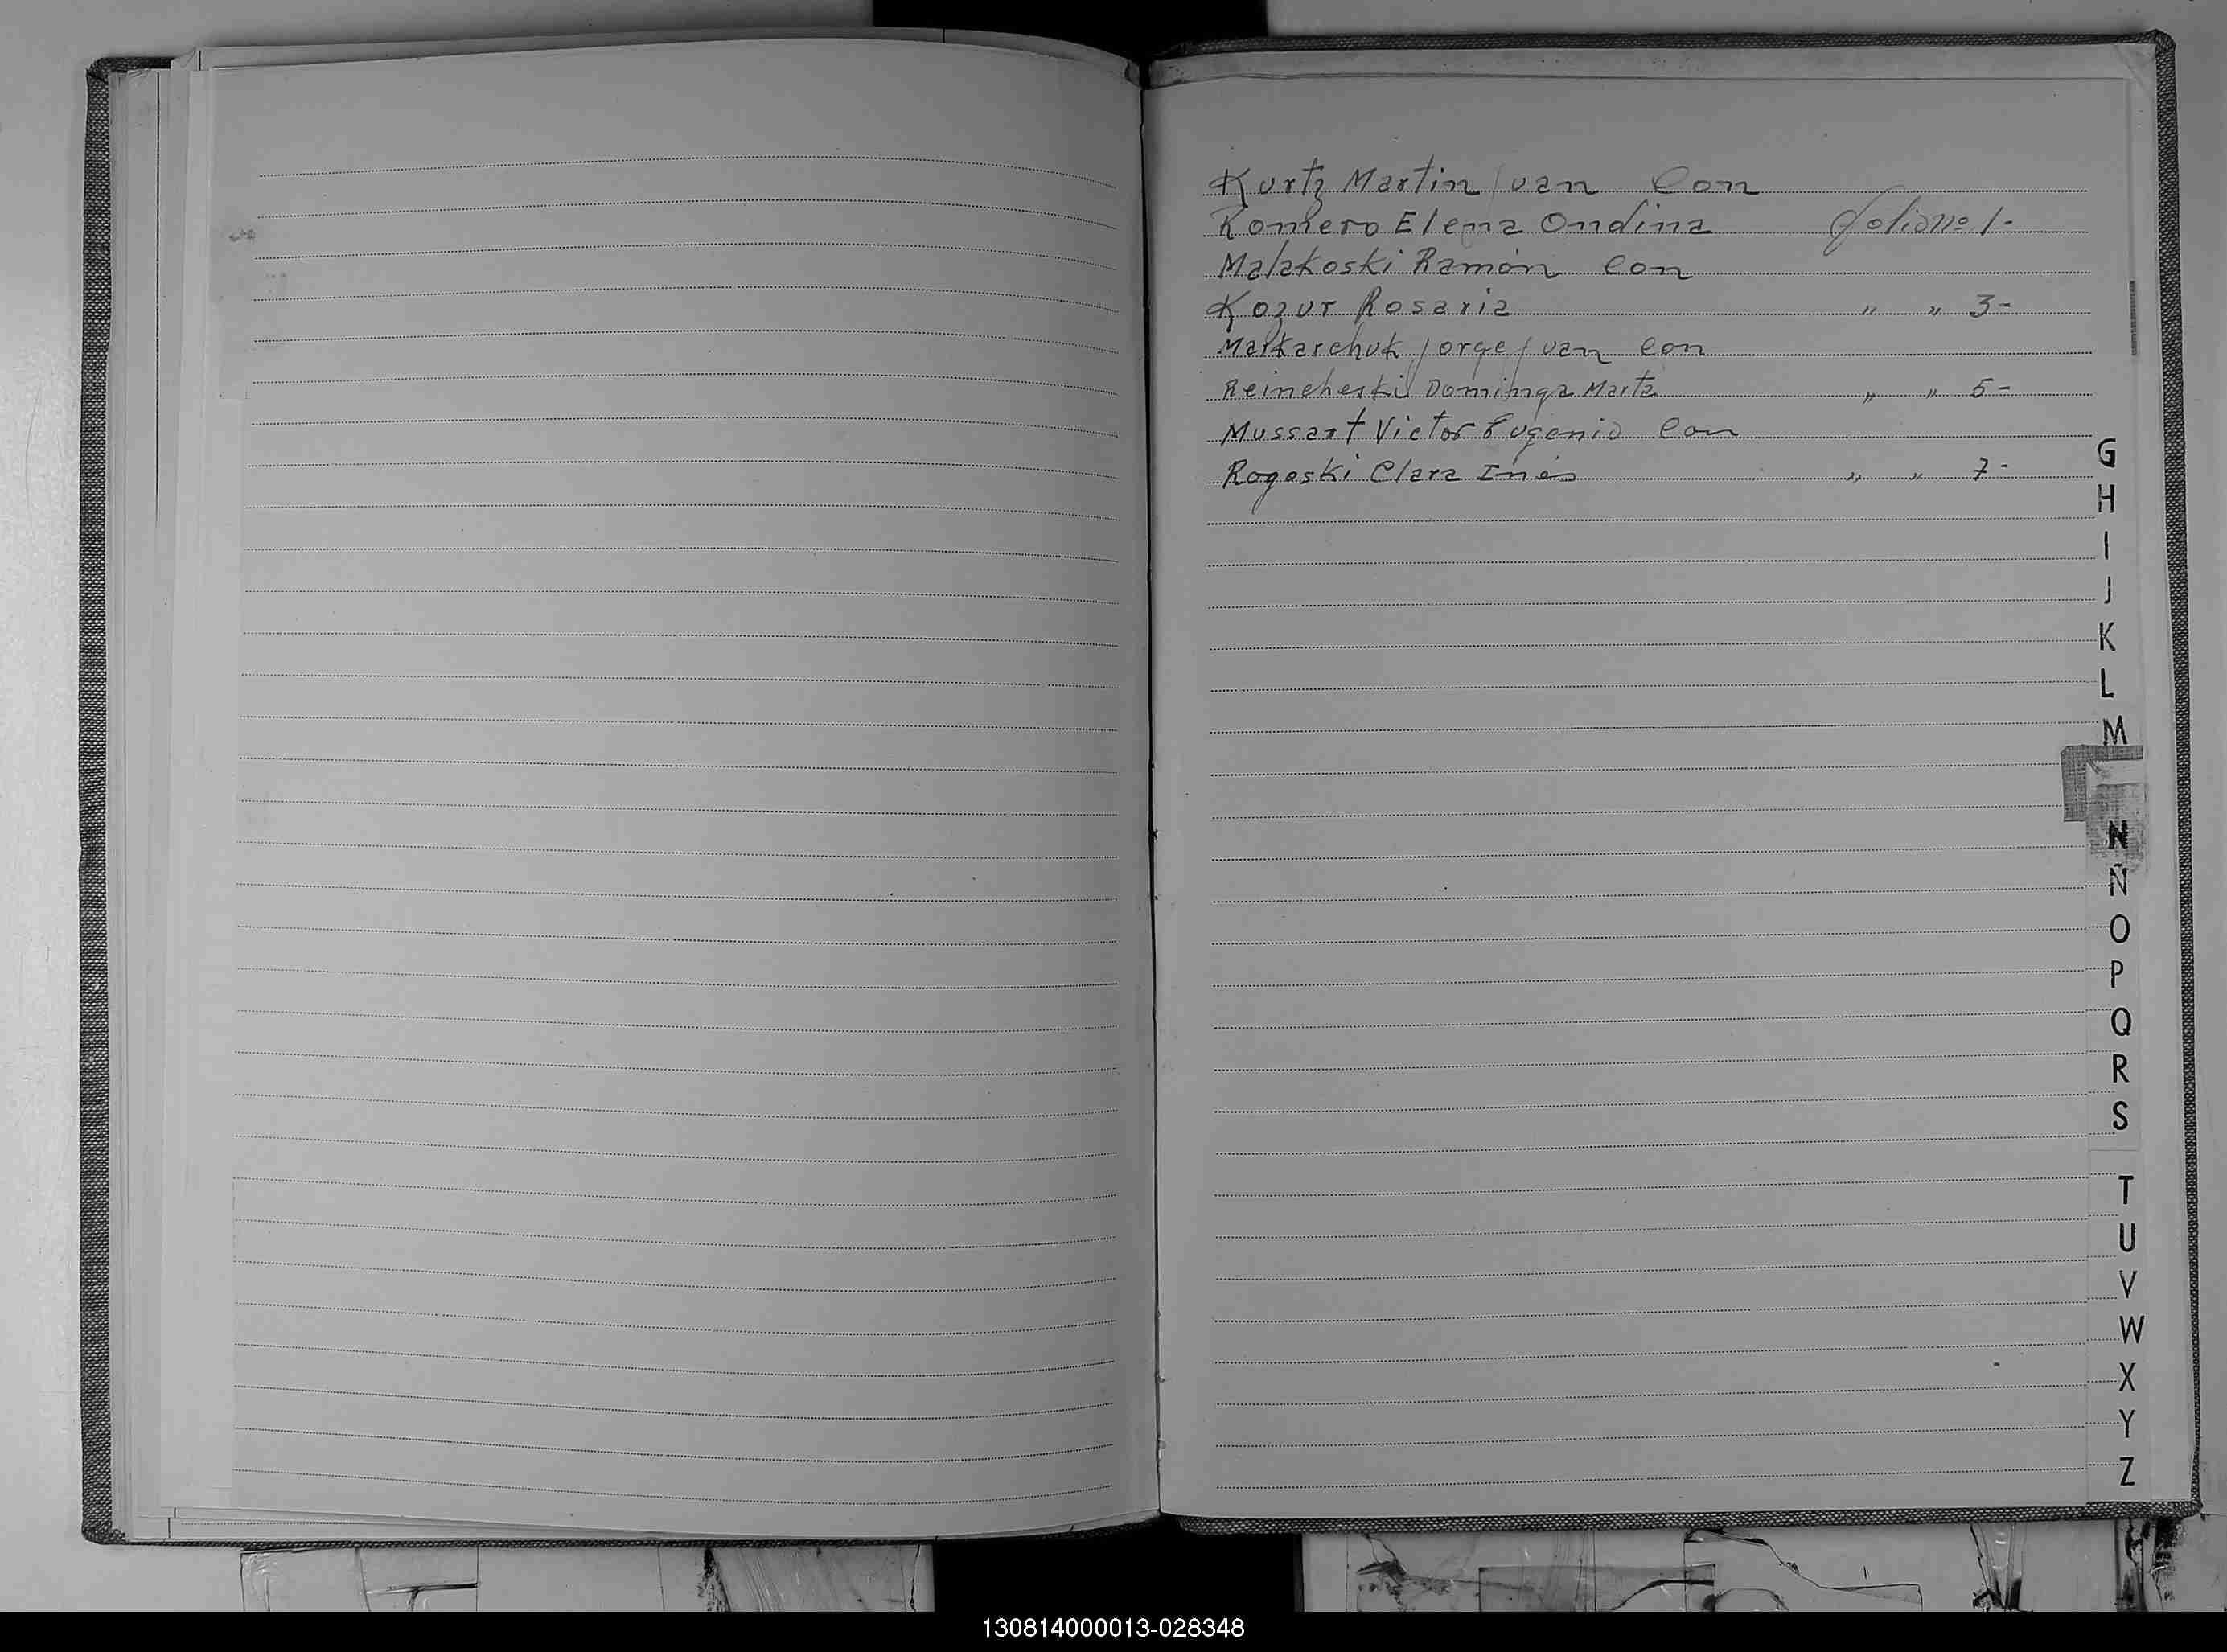 Kurtz Martin Juan Con
Romero Elena Ondina Folio nº 1-
Malakoski Ramón Con
Kozur Rosaria " " 3-
Markarchuk Jorge Juan Con
Reincheski Dominga Marta " " 5-
Mussart Victor Eugenio Con
Rogoski Clara Inés " " 7-
G
H
I
J
K
L
M
N
Ñ
O
P
Q
R
S
T
U
V
W
X
Y
Z
130814000013-028348